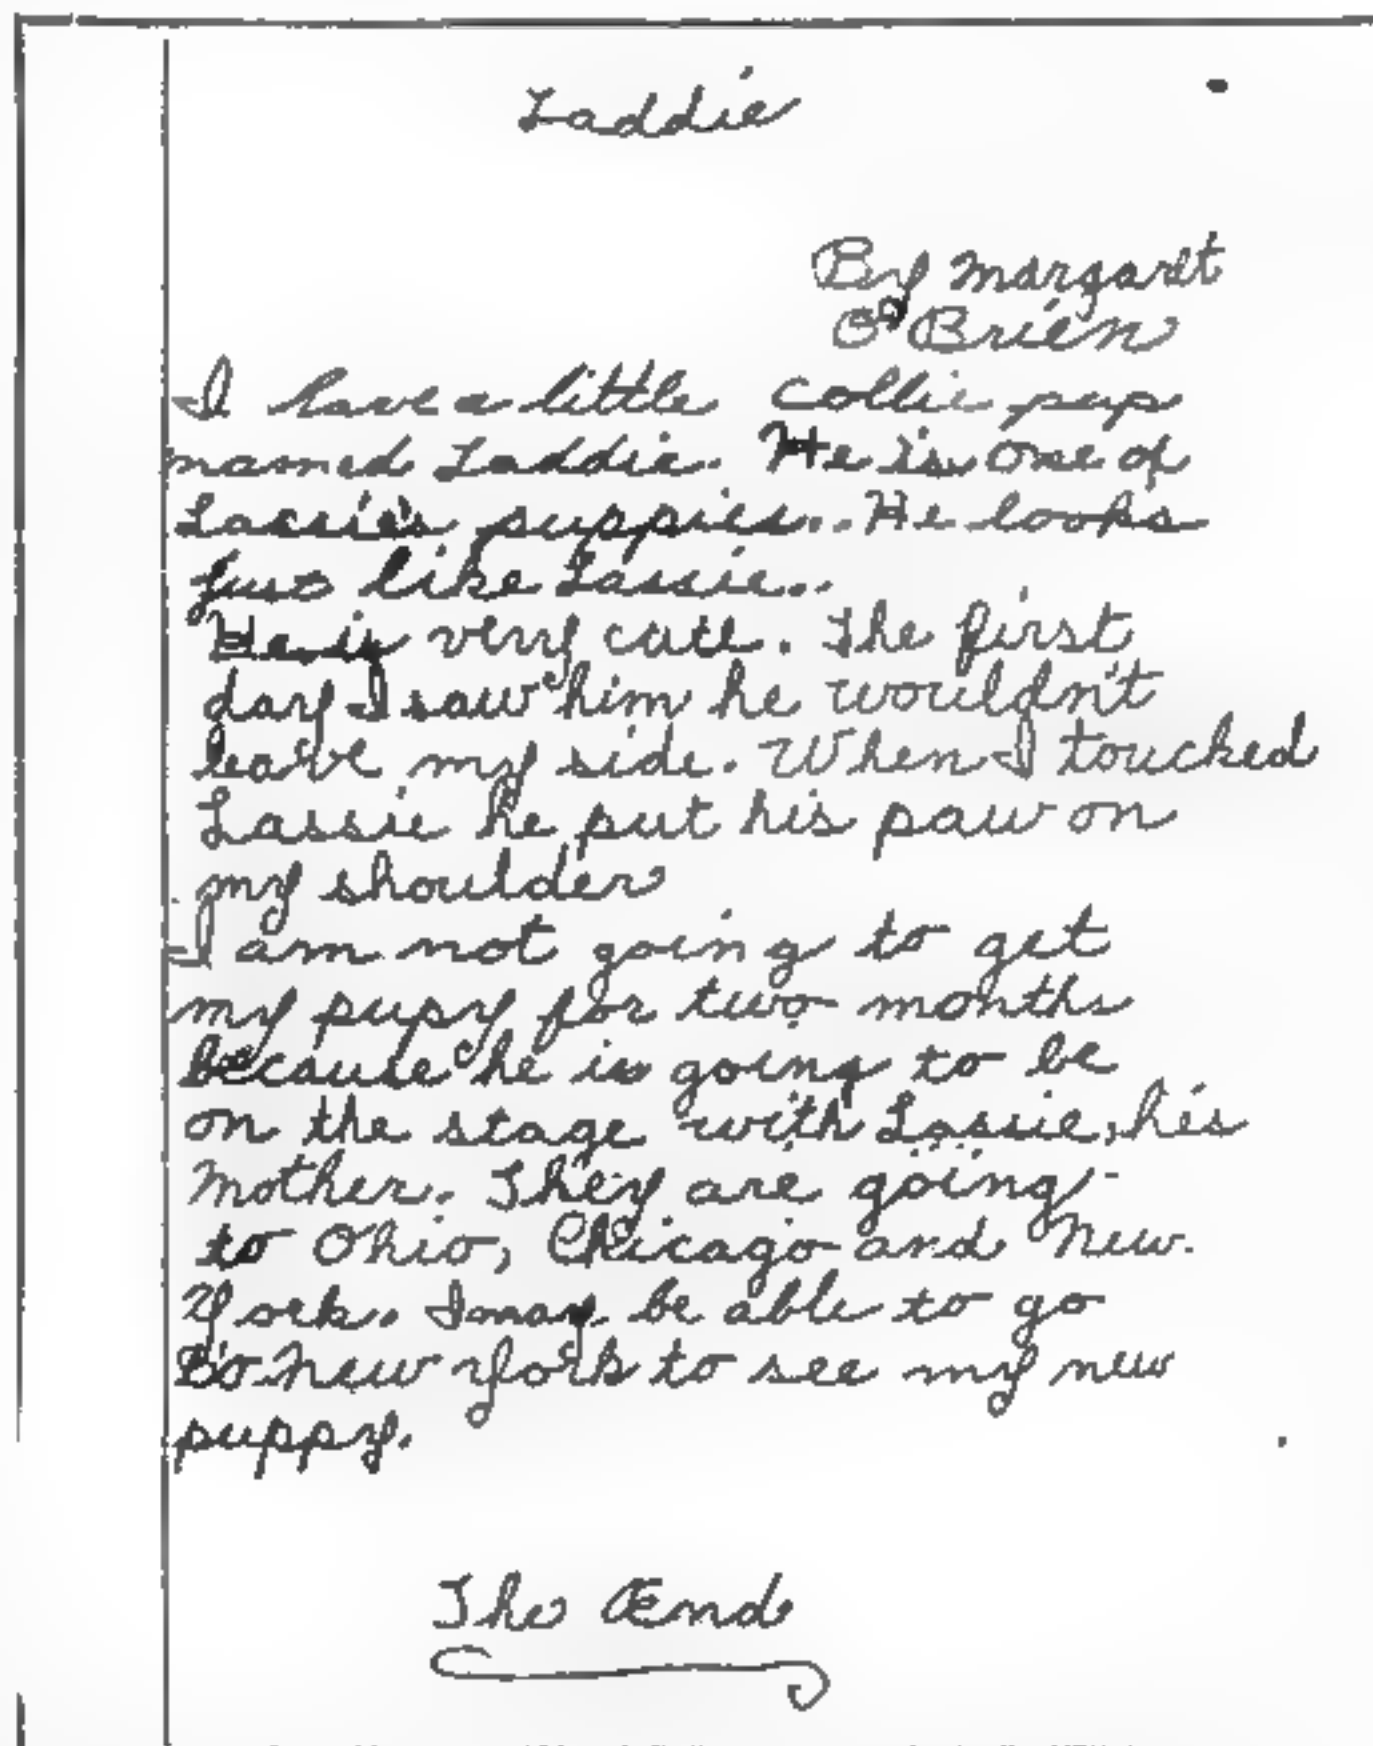 Laddie
By Margaret
O'Brien
I have a little collie pup
named Laddie. He is one of
Lassie's puppies.. He looks
just like Lassie..
He is very cute. The first
day I saw him he wouldn't
leave my side. When I touched
Lassie he put his paw on
my shoulder
I am not going to get
my pupy for two months
because he is going to be
on the stage with Lassie, his
Mother. They are going
to Ohio, Chicago and New
York. I may be able to go
to New York to see my new
puppy.
The End